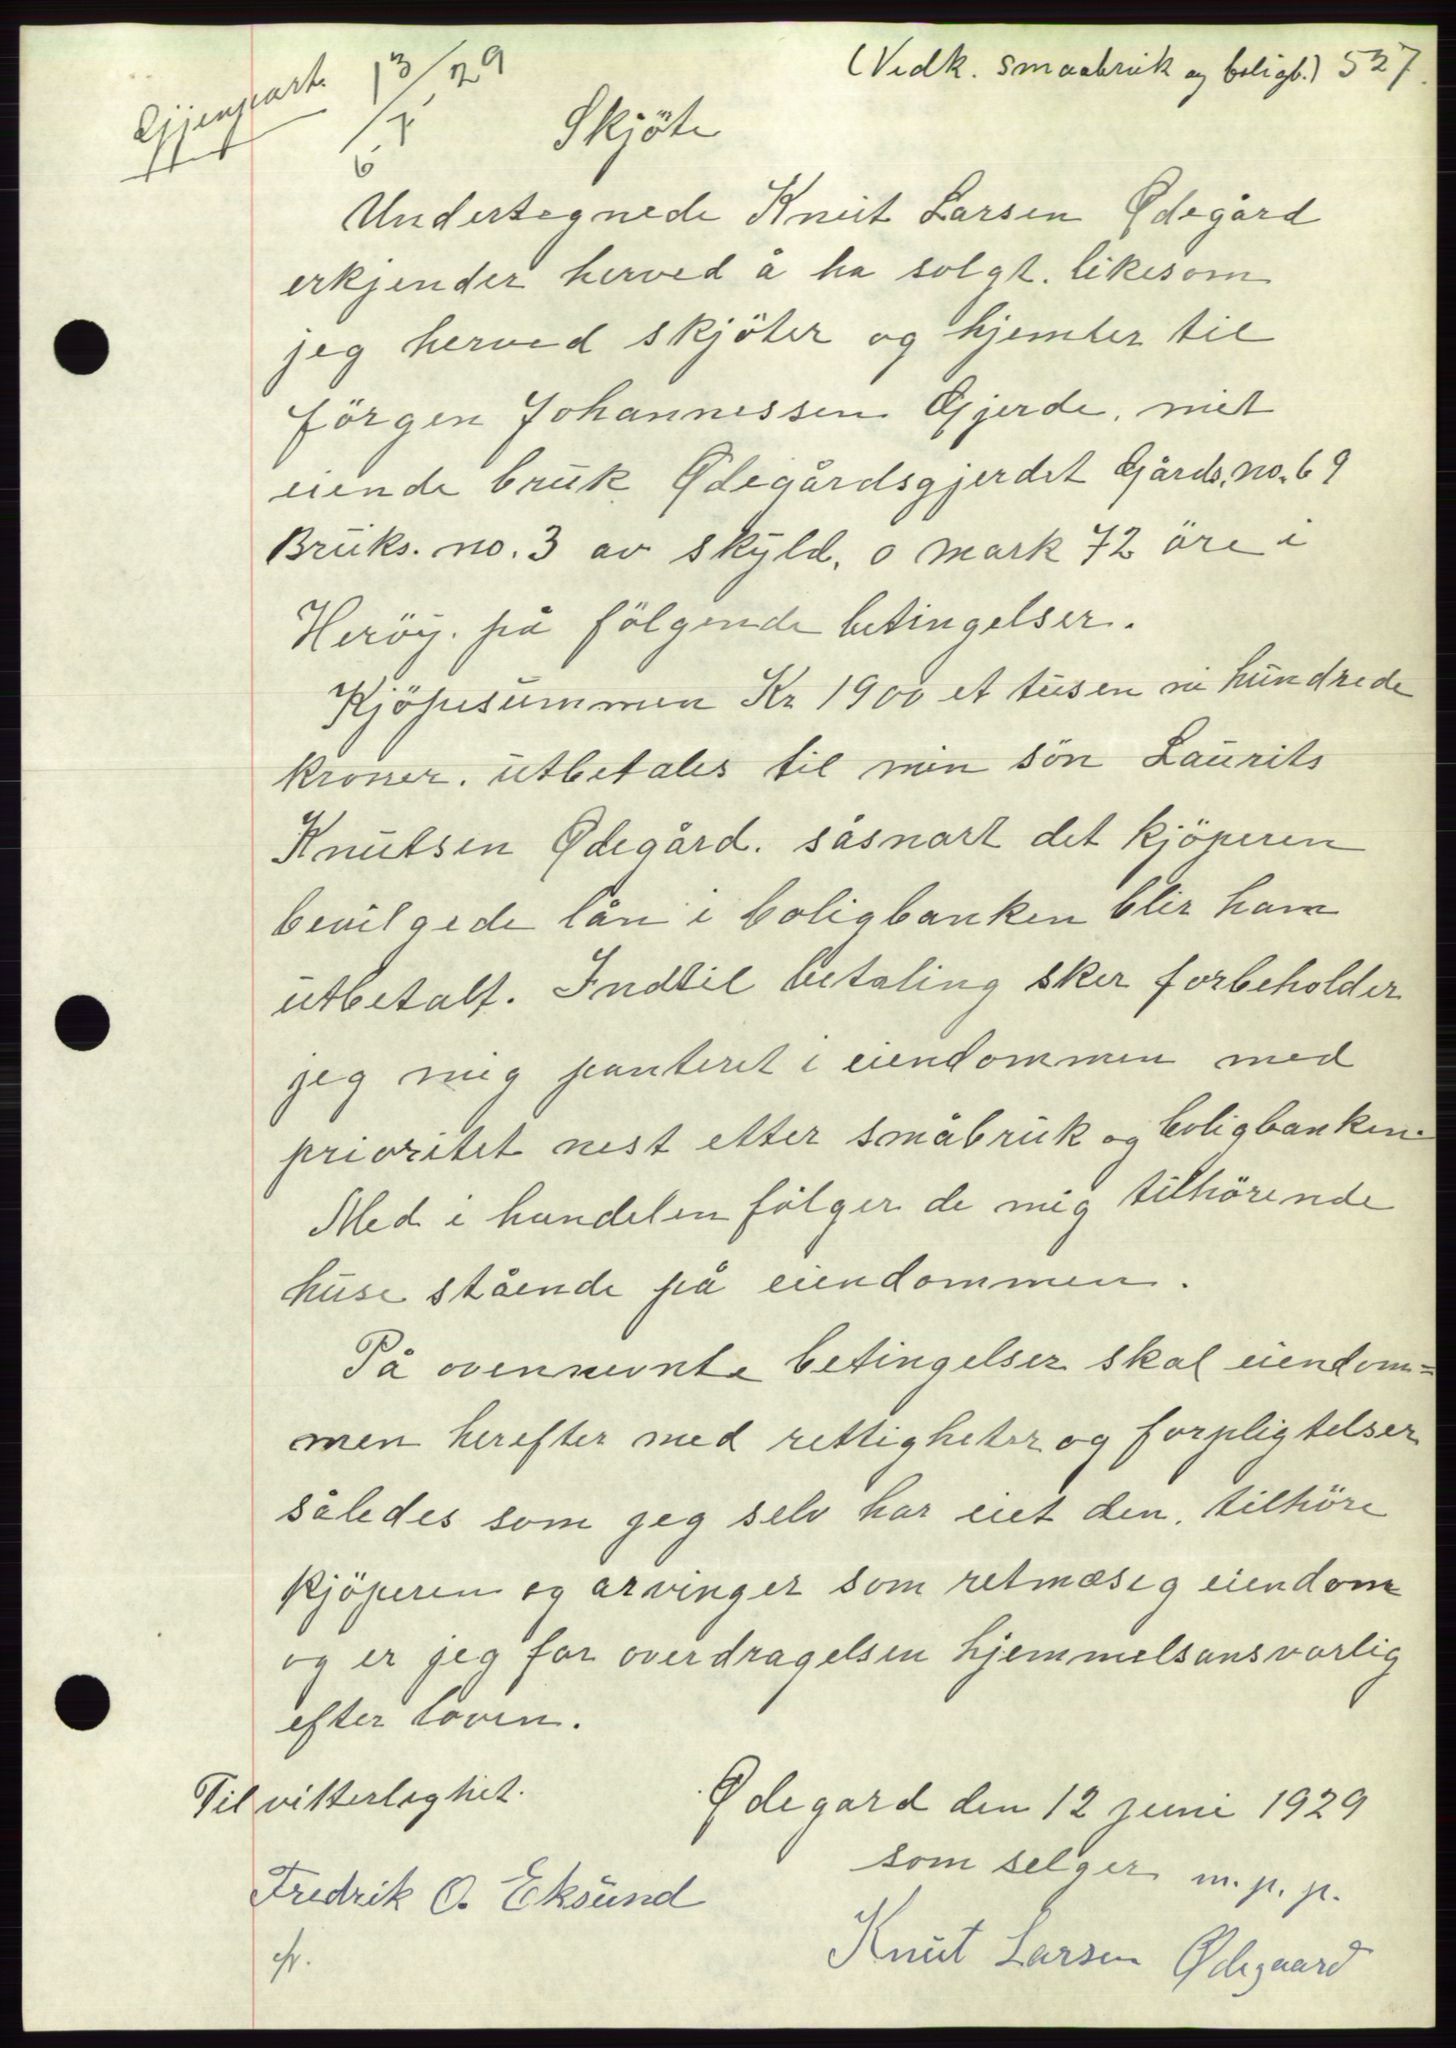 (Vedk. smaabruk og boligb.) 527.
Gjenpart. 13/7, 29
6
Skjöte
Undertegnede Knut Larsen Ødegård
erkjender herved å ha solgt. likesom
jeg herved skjöter og hjemler til
Jörgen Johannessen Gjerde, mit
eiende bruk Ødegårdsgjerdet Gårds. no. 69
Bruks. no. 3 av skyld. 0 mark 72 öre i
Heröy. på fölgende betingelser.
Kjöpesummen Kr 1900 et tusen ni hundrede
kroner. utbetales til min sön Laurits
Knutsen Ødegård. såsnart det kjöperen
bevilgede lån i boligbanken blir ham
utbetalt. Indtil betaling sker forbeholder
jeg mig panteret i eiendommen med
prioritet nest etter småbruk og boligbanken.
Med i handelen fölger de mig tilhörende
huse stående på eiendommen.
På ovennevnte betingelser skal eiendom=
men herefter med rettigheter og forpligtelser
således som jeg selv har eiet den. tilhöre
kjöperen og arvinger som retmæsig eiendom
og er jeg for overdragelsen hjemmelsansvarlig
efter loven.
Til vitterlighet. Ødegard den 12 juni 1929
som selger m. p. p.
Fredrik O. Eksund
Knut Larsen Ødegaard